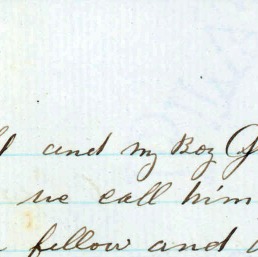 and my Boy
we call him
fellow and